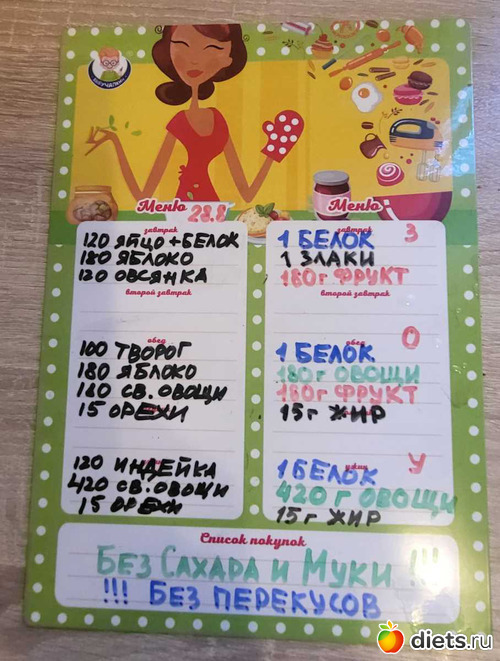 ВЫРУЧАЛКИН
Меню 28.8
завтрак
120 ЯЙЦО + БЕЛОК
180 ЯБЛОКО
120 ОВСЯНКА
второй завтрак
обед
100 ТВОРОГ
180 ЯБЛОКО
180 СВ. ОВОЩИ
15 ОРЕХИ
120 ИНДЕЙКА
420 СВ. ОВОЩИ
15 ОРЕХИ
Меню
завтрак
1 БЕЛОК З
1 ЗЛАКИ
180г ФРУКТ
второй завтрак
обед
1 БЕЛОК О
180г ОВОЩИ
180г ФРУКТ
15г ЖИР
ужин
1 БЕЛОК У
420 г ОВОЩИ
15г ЖИР
Список покупок
БЕЗ САХАРА И МУКИ !!!
!!! БЕЗ ПЕРЕКУСОВ
diets.ru